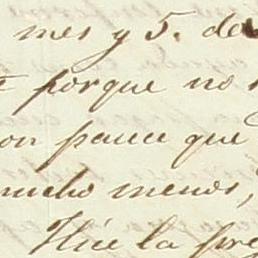 mes y 5. de
porque no
on parece que
mucho menos,
Hice la pre